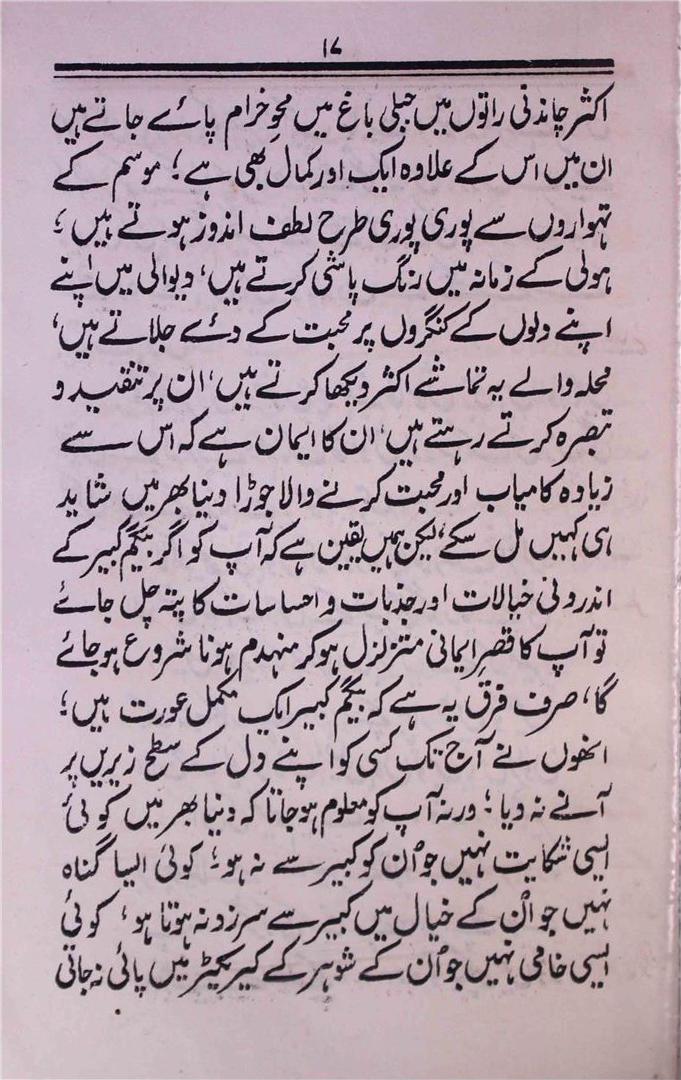 ۱۷
اکثر چاندنی راتوں میں جبلی باغ میں محوِ خرام پائے جاتے ہیں
ان میں اس کے علاوہ ایک اور کمال بھی ہے؛ موسم کے
تہواروں سے پوری پوری طرح لطف اندوز ہوتے ہیں؛
ہولی کے زمانہ میں رنگ پاشی کرتے ہیں، دیوالی میں اپنے
اپنے دلوں کے کنگروں پر محبت کے دئے جلاتے ہیں،
محلہ والے یہ تماشے اکثر دیکھا کرتے ہیں، ان پر تنقید و
تبصرہ کرتے رہتے ہیں، ان کا ایمان ہے کہ اس سے
زیادہ کامیاب اور محبت کرنے والا جوڑا دنیا بھر میں شاید
ہی کہیں مل سکے، لیکن ہمیں یقین ہے کہ آپ کو اگر بیگم کبیر کے
اندرونی خیالات اور جذبات و احساسات کا پتہ چل جائے
تو آپ کا قصرِ ایمانی متزلزل ہو کر منہدم ہونا شروع ہو جائے
گا، صرف فرق یہ ہے کہ بیگم کبیر ایک مکمل عورت ہیں؛
انھوں نے آج تک کسی کو اپنے دل کے سطح زیریں پر
آنے نہ دیا؛ ورنہ آپ کو معلوم ہو جاتا کہ دنیا بھر میں کوئی
ایسی شکایت نہیں جو اُن کو کبیر سے نہ ہو؛ کوئی ایسا گناہ
نہیں جو اُن کے خیال میں کبیر سے سرزد نہ ہوتا ہو، کوئی
ایسی خامی نہیں جو اُن کے شوہر کے کیریکٹر میں پائی نہ جاتی